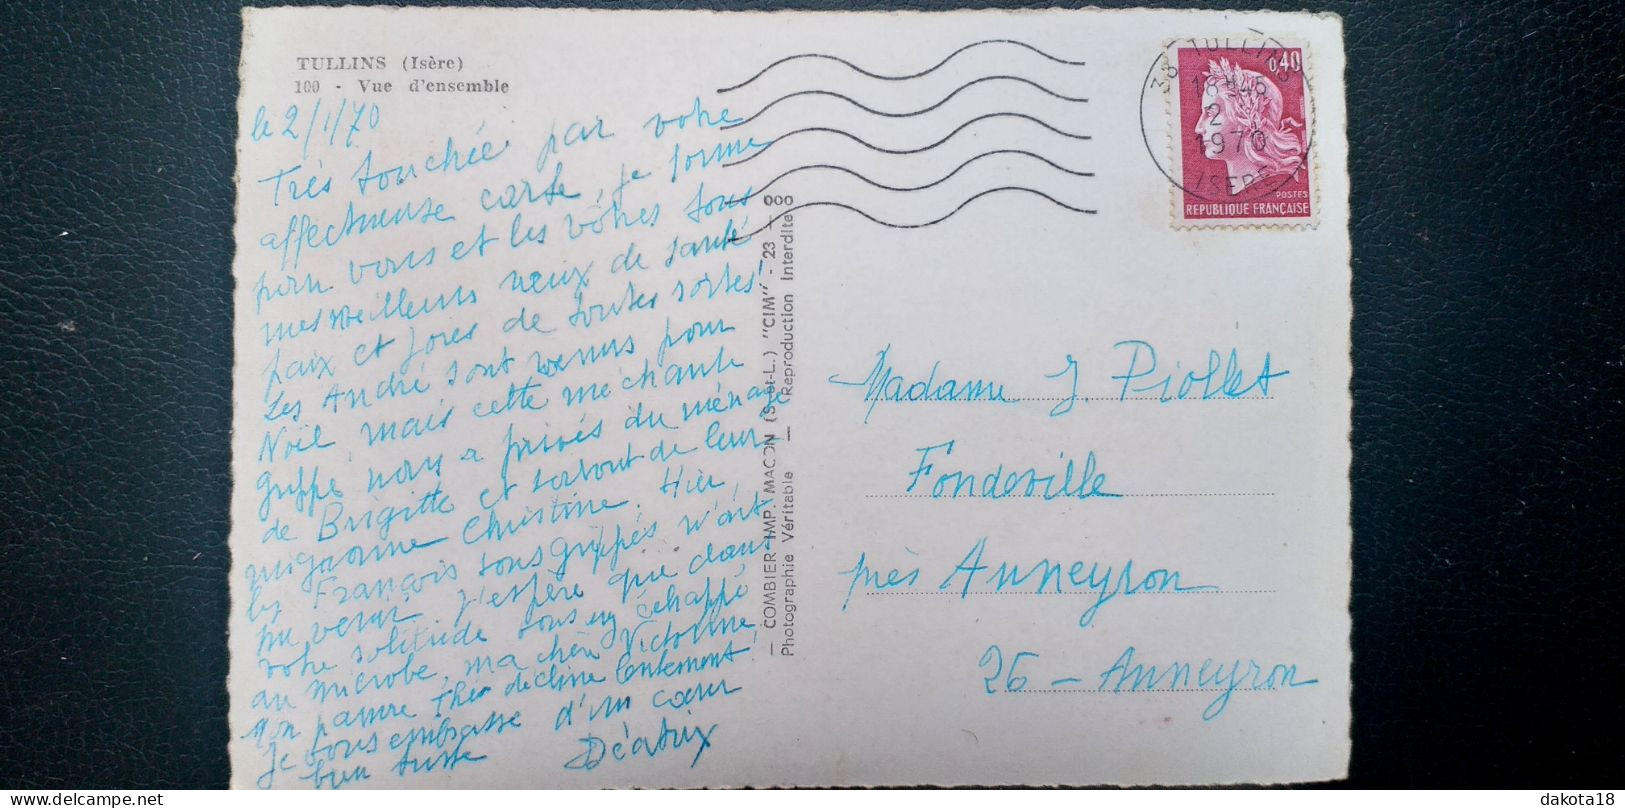 TULLINS (Isère)
100 - Vue d'ensemble
le 2/1/70
Très touchée par votre
affectueuse carte, je forme
pour vous et les vôtres tous
mes meilleurs vœux de santé
paix et joies de toutes sortes!
Les André sont venus pour
Noël, mais cette méchante
grippe nous a privés du ménage
de Brigitte et surtout de leur
mignonne Christine. Hier,
les François tous grippés n'ont
pu venir. J'espère que dans
votre solitude vous ayez échappé
au microbe, ma chère Victorine,
Mon pauvre Théo décline lentement
Je vous embrasse d'un cœur
bien triste
Béatrix
— COMBIER IMP. MACON (S.-et-L.) "CIM" - 23 - 000
Photographie Véritable — Reproduction Interdite
38 TULLINS
18H45
2 - 1
1970
ISERE
0,40
POSTES
REPUBLIQUE FRANÇAISE
Madame J. Piollet
Fondeville
près Anneyron
26 - Anneyron
dakota18